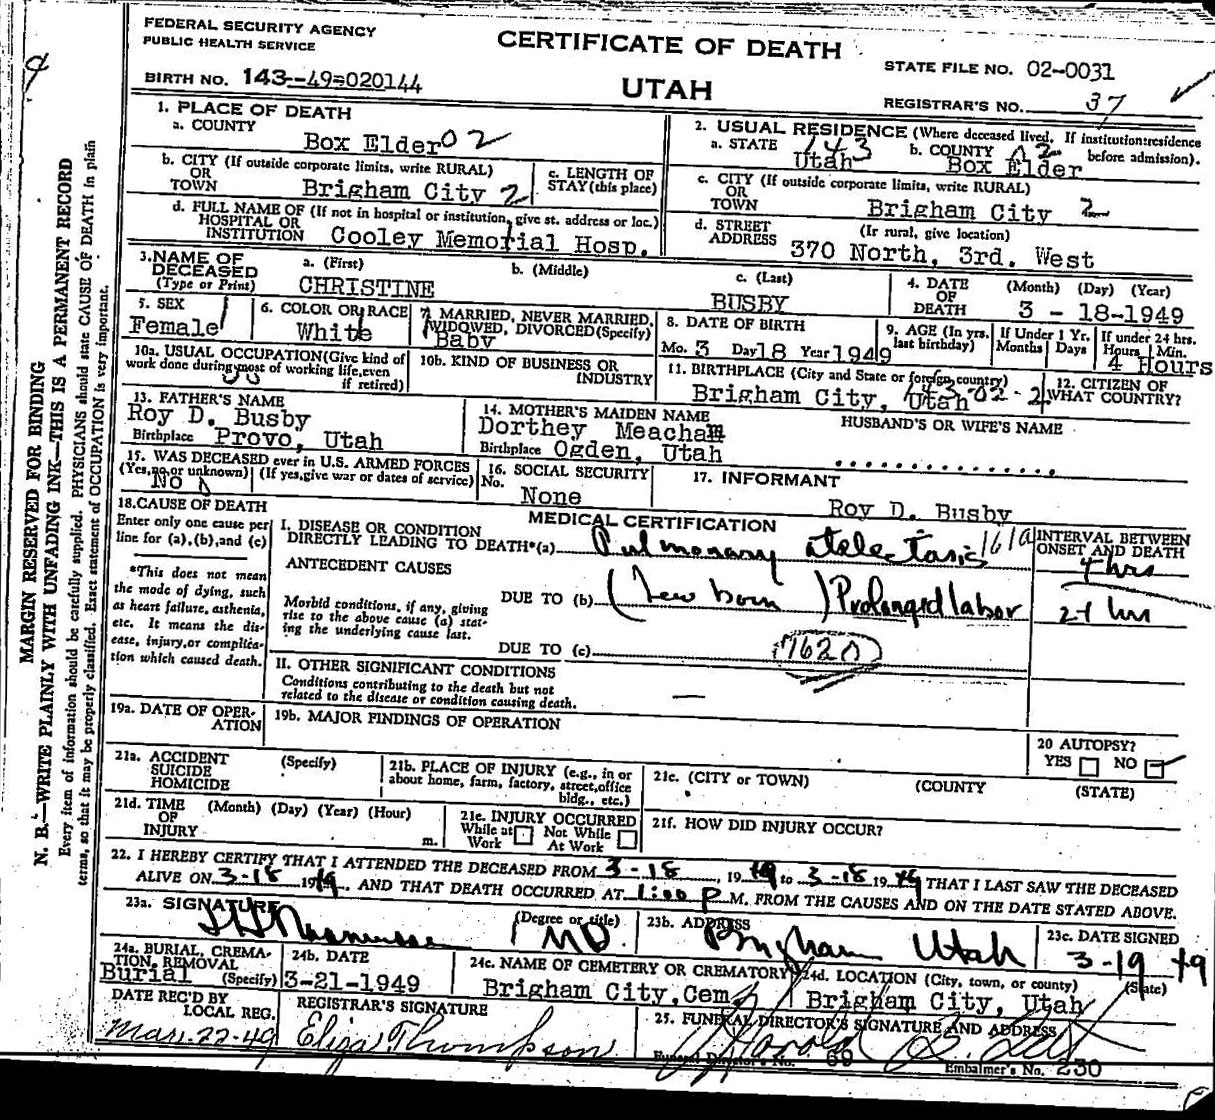 FEDERAL SECURITY AGENCY
PUBLIC HEALTH SERVICE
CERTIFICATE OF DEATH
STATE FILE NO. 02-0031
BIRTH NO. 143--49=020144
UTAH
REGISTRAR'S NO. 37
1. PLACE OF DEATH
a. COUNTY
Box Elder 02
2. USUAL RESIDENCE (Where deceased lived. If institution:residence before admission).
a. STATE 143
Utah
b. COUNTY 02
Box Elder
b. CITY (If outside corporate limits, write RURAL)
OR
TOWN Brigham City 2
c. LENGTH OF
STAY (this place)
c. CITY (If outside corporate limits, write RURAL)
OR
TOWN Brigham City 2
d. FULL NAME OF (If not in hospital or institution, give st. address or loc.)
HOSPITAL OR
INSTITUTION Cooley Memorial Hosp.
d. STREET (Ir rural, give location)
ADDRESS 370 North, 3rd. West
3. NAME OF
DECEASED
(Type or Print)
a. (First)
CHRISTINE
b. (Middle)
c. (Last)
BUSBY
4. DATE
OF
DEATH
(Month) (Day) (Year)
3 - 18-1949
5. SEX
Female
6. COLOR OR RACE
White
7. MARRIED, NEVER MARRIED,
WIDOWED, DIVORCED (Specify)
Baby
8. DATE OF BIRTH
Mo. 3 Day 18 Year 1949
9. AGE (In yrs.
last birthday)
If Under 1 Yr.
Months Days
If under 24 hrs.
Hours Min.
4 Hours
10a. USUAL OCCUPATION (Give kind of
work done during most of working life, even
if retired)
10b. KIND OF BUSINESS OR
INDUSTRY
11. BIRTHPLACE (City and State or foreign country)
Brigham City, Utah
12. CITIZEN OF
WHAT COUNTRY?
13. FATHER'S NAME
Roy D. Busby
Birthplace Provo, Utah
14. MOTHER'S MAIDEN NAME
Dorthey Meacham
Birthplace Ogden, Utah
HUSBAND'S OR WIFE'S NAME
15. WAS DECEASED ever in U.S. ARMED FORCES
(Yes, no, or unknown) (If yes, give war or dates of service)
No
16. SOCIAL SECURITY
No.
None
17. INFORMANT
Roy D. Busby
18. CAUSE OF DEATH
Enter only one cause per
line for (a), (b), and (c)
*This does not mean
the mode of dying, such
as heart failure, asthenia,
etc. It means the dis-
ease, injury, or complica-
tion which caused death.
MEDICAL CERTIFICATION
I. DISEASE OR CONDITION
DIRECTLY LEADING TO DEATH*(a) Pulmonary atelectasis 161a
INTERVAL BETWEEN
ONSET AND DEATH
4 hrs
ANTECEDENT CAUSES
Morbid conditions, if any, giving
rise to the above cause (a) stat-
ing the underlying cause last.
DUE TO (b) (New born) Prolonged labor
DUE TO (c) 7620
II. OTHER SIGNIFICANT CONDITIONS
Conditions contributing to the death but not
related to the disease or condition causing death.
—
19a. DATE OF OPER-
ATION
19b. MAJOR FINDINGS OF OPERATION
20 AUTOPSY?
YES NO
21a. ACCIDENT (Specify)
SUICIDE
HOMICIDE
21b. PLACE OF INJURY (e.g., in or
about home, farm, factory, street, office
bldg., etc.)
21c. (CITY or TOWN) (COUNTY) (STATE)
21d. TIME (Month) (Day) (Year) (Hour)
OF
INJURY m.
21e. INJURY OCCURRED
While at Work Not While At Work
21f. HOW DID INJURY OCCUR?
22. I HEREBY CERTIFY THAT I ATTENDED THE DECEASED FROM 3-18, 1949 to 3-18 1949 THAT I LAST SAW THE DECEASED
ALIVE ON 3-18 1949, AND THAT DEATH OCCURRED AT 1:00 P M. FROM THE CAUSES AND ON THE DATE STATED ABOVE.
23a. SIGNATURE
Rasmussen
(Degree or title)
MD
23b. ADDRESS
Brigham Utah
23c. DATE SIGNED
3-19 49
24a. BURIAL, CREMA-
TION, REMOVAL
Burial (Specify)
24b. DATE
3-21-1949
24c. NAME OF CEMETERY OR CREMATORY
Brigham City, Cem.
24d. LOCATION (City, town, or county) (State)
Brigham City, Utah
DATE REC'D BY
LOCAL REG.
Mar. 22-49
REGISTRAR'S SIGNATURE
Eliza Thompson
25. FUNERAL DIRECTOR'S SIGNATURE AND ADDRESS
Harold B. Felt
Funeral Director's No. 69
Embalmer's No. 230
MARGIN RESERVED FOR BINDING
N. B.—WRITE PLAINLY WITH UNFADING INK—THIS IS A PERMANENT RECORD
Every item of information should be carefully supplied. PHYSICIANS should state CAUSE OF DEATH in plain
terms, so that it may be properly classified. Exact statement of OCCUPATION is very important.